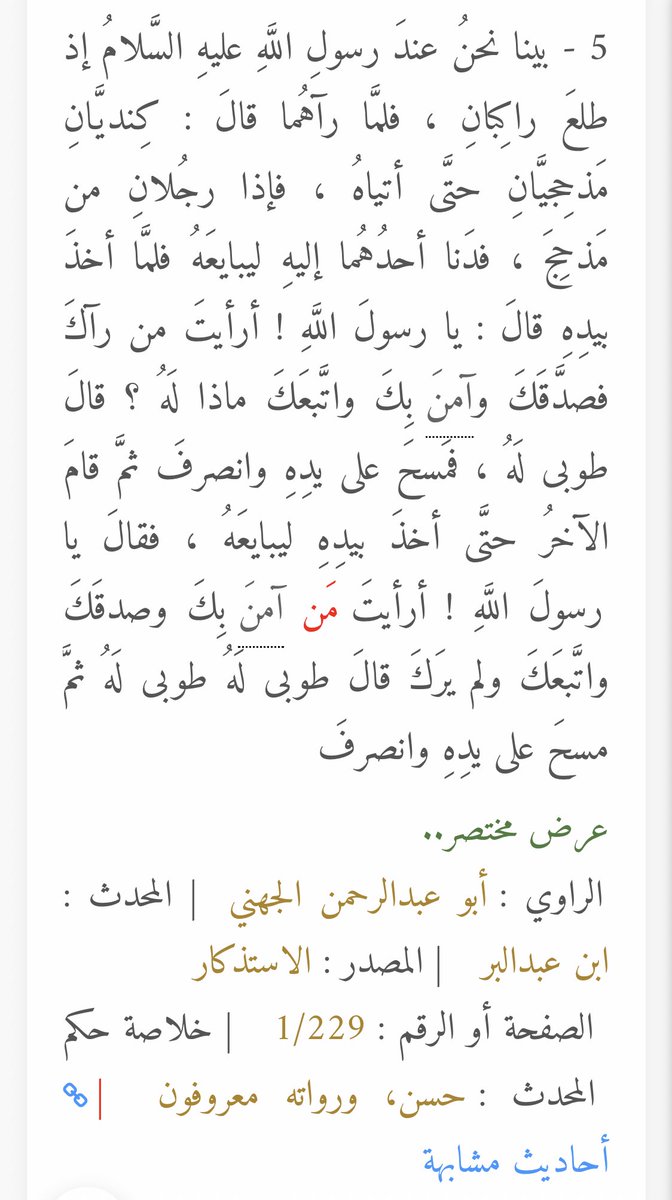 5 - بينا نحنُ عندَ رسولِ اللَّهِ عليهِ السَّلامُ إذ
طلعَ راكِبانِ ، فلمَّا رآهُما قالَ : كِنديَّانِ
مَذحِجيَّانِ حتَّى أتياهُ ، فإذا رجُلانِ من
مَذحِجَ ، فدَنا أحدُهُما إليهِ ليبايعَهُ فلمَّا أخذَ
بيدِهِ قالَ : يا رسولَ اللَّهِ ! أرأيتَ من رآكَ
فصدَّقَكَ وآمنَ بِكَ واتَّبعَكَ ماذا لَهُ ؟ قالَ
طوبى لَهُ ، فمَسحَ على يدِهِ وانصرفَ ثمَّ قامَ
الآخرُ حتَّى أخذَ بيدِهِ ليبايعَهُ ، فقالَ يا
رسولَ اللَّهِ ! أرأيتَ مَن آمنَ بِكَ وصدقَكَ
واتَّبعَكَ ولم يرَكَ قالَ طوبى لَهُ طوبى لَهُ ثمَّ
مسحَ على يدِهِ وانصرفَ
عرض مختصر..
الراوي : أبو عبدالرحمن الجهني | المحدث :
ابن عبدالبر | المصدر : الاستذكار
الصفحة أو الرقم : 1/229 | خلاصة حكم
المحدث : حسن، ورواته معروفون |
أحاديث مشابهة